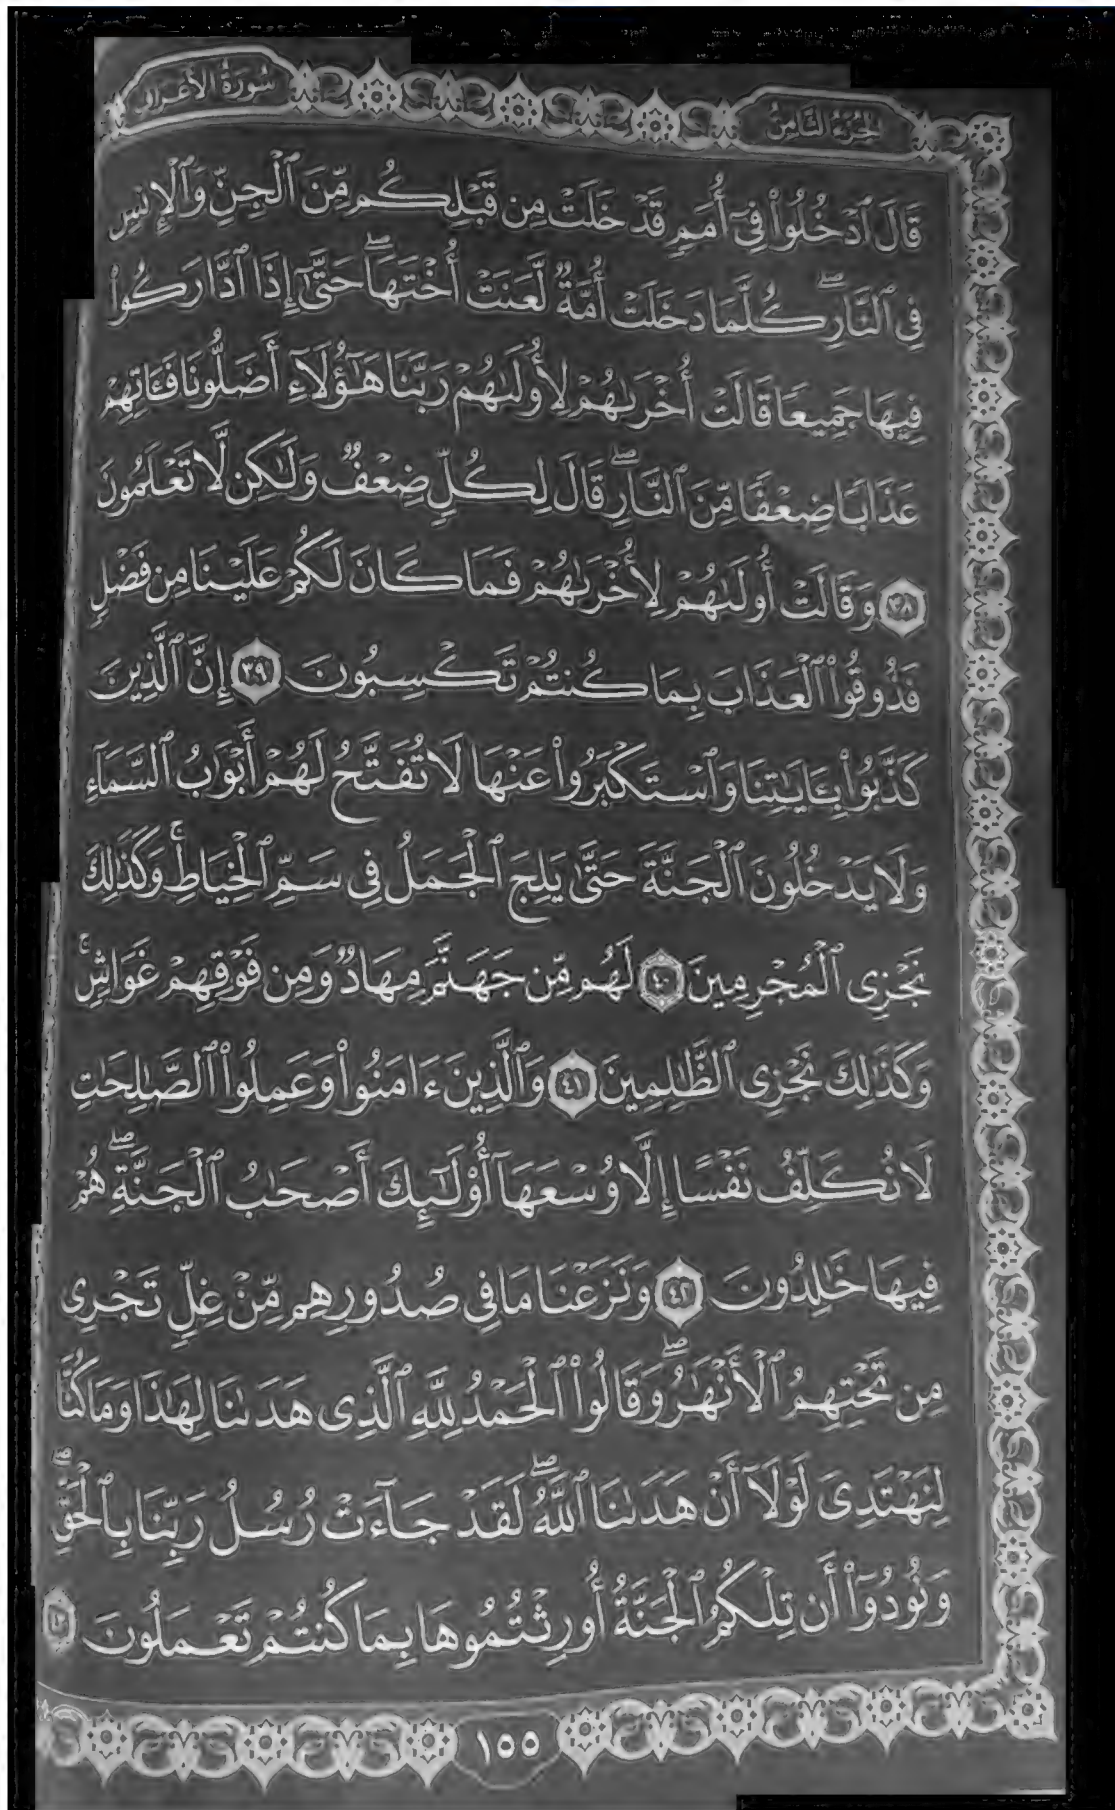 الجزء الثامن
سورة الأعراف
قَالَ ٱدْخُلُوا۟ فِىٓ أُمَمٍ قَدْ خَلَتْ مِن قَبْلِكُم مِّنَ ٱلْجِنِّ وَٱلْإِنسِ
فِى ٱلنَّارِۖ كُلَّمَا دَخَلَتْ أُمَّةٌ لَّعَنَتْ أُخْتَهَاۖ حَتَّىٰٓ إِذَا ٱدَّارَكُوا۟
فِيهَا جَمِيعًا قَالَتْ أُخْرَىٰهُمْ لِأُولَىٰهُمْ رَبَّنَا هَـٰٓؤُلَآءِ أَضَلُّونَا فَـَٔاتِهِمْ
عَذَابًا ضِعْفًا مِّنَ ٱلنَّارِۖ قَالَ لِكُلٍّ ضِعْفٌ وَلَـٰكِن لَّا تَعْلَمُونَ
٣٨ وَقَالَتْ أُولَىٰهُمْ لِأُخْرَىٰهُمْ فَمَا كَانَ لَكُمْ عَلَيْنَا مِن فَضْلٍ
فَذُوقُوا۟ ٱلْعَذَابَ بِمَا كُنتُمْ تَكْسِبُونَ ٣٩ إِنَّ ٱلَّذِينَ
كَذَّبُوا۟ بِـَٔايَـٰتِنَا وَٱسْتَكْبَرُوا۟ عَنْهَا لَا تُفَتَّحُ لَهُمْ أَبْوَٰبُ ٱلسَّمَآءِ
وَلَا يَدْخُلُونَ ٱلْجَنَّةَ حَتَّىٰ يَلِجَ ٱلْجَمَلُ فِى سَمِّ ٱلْخِيَاطِۚ وَكَذَٰلِكَ
نَجْزِى ٱلْمُجْرِمِينَ ٤٠ لَهُم مِّن جَهَنَّمَ مِهَادٌ وَمِن فَوْقِهِمْ غَوَاشٍۚ
وَكَذَٰلِكَ نَجْزِى ٱلظَّـٰلِمِينَ ٤١ وَٱلَّذِينَ ءَامَنُوا۟ وَعَمِلُوا۟ ٱلصَّـٰلِحَـٰتِ
لَا نُكَلِّفُ نَفْسًا إِلَّا وُسْعَهَآ أُو۟لَـٰٓئِكَ أَصْحَـٰبُ ٱلْجَنَّةِۖ هُمْ
فِيهَا خَـٰلِدُونَ ٤٢ وَنَزَعْنَا مَا فِى صُدُورِهِم مِّنْ غِلٍّ تَجْرِى
مِن تَحْتِهِمُ ٱلْأَنْهَـٰرُۖ وَقَالُوا۟ ٱلْحَمْدُ لِلَّهِ ٱلَّذِى هَدَىٰنَا لِهَـٰذَا وَمَا كُنَّا
لِنَهْتَدِىَ لَوْلَآ أَنْ هَدَىٰنَا ٱللَّهُۖ لَقَدْ جَآءَتْ رُسُلُ رَبِّنَا بِٱلْحَقِّۖ
وَنُودُوٓا۟ أَن تِلْكُمُ ٱلْجَنَّةُ أُورِثْتُمُوهَا بِمَا كُنتُمْ تَعْمَلُونَ
١٥٥